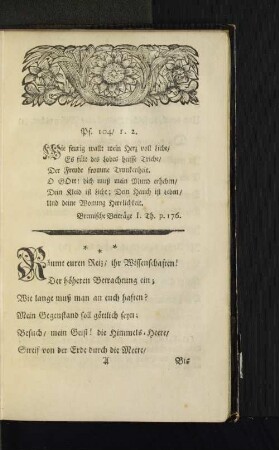 Ps. 104/ 1. 2.
Wie feurig wallt mein Herz voll Liebe/
Es fühlt des Lobes heisse Triebe/
Der Freude fromme Trunkenheit.
O GOtt! dich muß mein Mund erheben/
Dein Kleid ist Licht; Dein Hauch ist Leben/
Und deine Wonung Herrlichkeit.
Bremische Beiträge I. Th. p. 176.
* * *
Räumt euren Reiz/ ihr Wissenschaften!
Der höheren Betrachtung ein;
Wie lange muß man an euch haften?
Mein Gegenstand soll göttlich seyn:
Besuch/ mein Geist! die Himmels-Heere/
Streif von der Erde durch die Meere/
A Bis